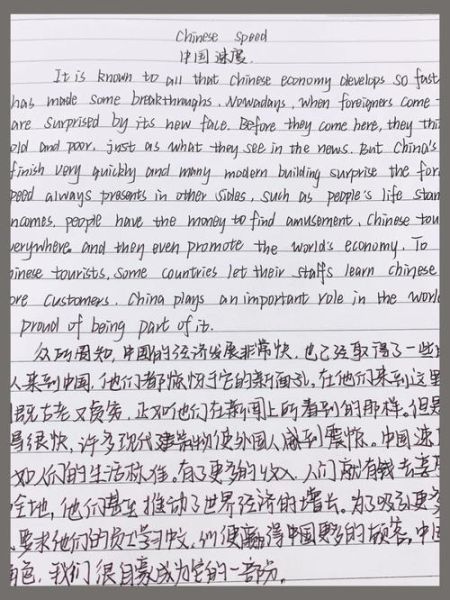 Chinese Speed
中国速度.
It is known to all that Chinese economy develops so fast
has made some breakthroughs. Nowadays, when foreigners come
are surprised by its new face. Before they come here, they thi
old and poor, just as what they see in the news. But China's
finish very quickly and many modern building surprise the for
peed always presents in other sides, such as people's life stan
ncomes, people have the money to find amusement, Chinese tou
verywhere and they even promote the world's economy. To
inese tourists, Some countries let their staffs learn chinese
ore customers. China plays an important role in the worl
proud of being part of it.
众所周知,中国的经济发展非常快,也已经取得了一些
人来到中国,他们都惊讶于它的新面孔。在他们来到这里
既古老又贫穷,正如他们在新闻上所看到的那样。但是
得很快,许多现代建筑物使外国人感到震惊。中国速
如人们的生活标准。有了更多的收入,人们就有钱去享
全地,他们甚至推动了世界经济的增长。为了吸引更多
、要求他们的员工学习中文,以便赢得中国更多的顾客。中国
角色,我们很自豪成为它的一部份。